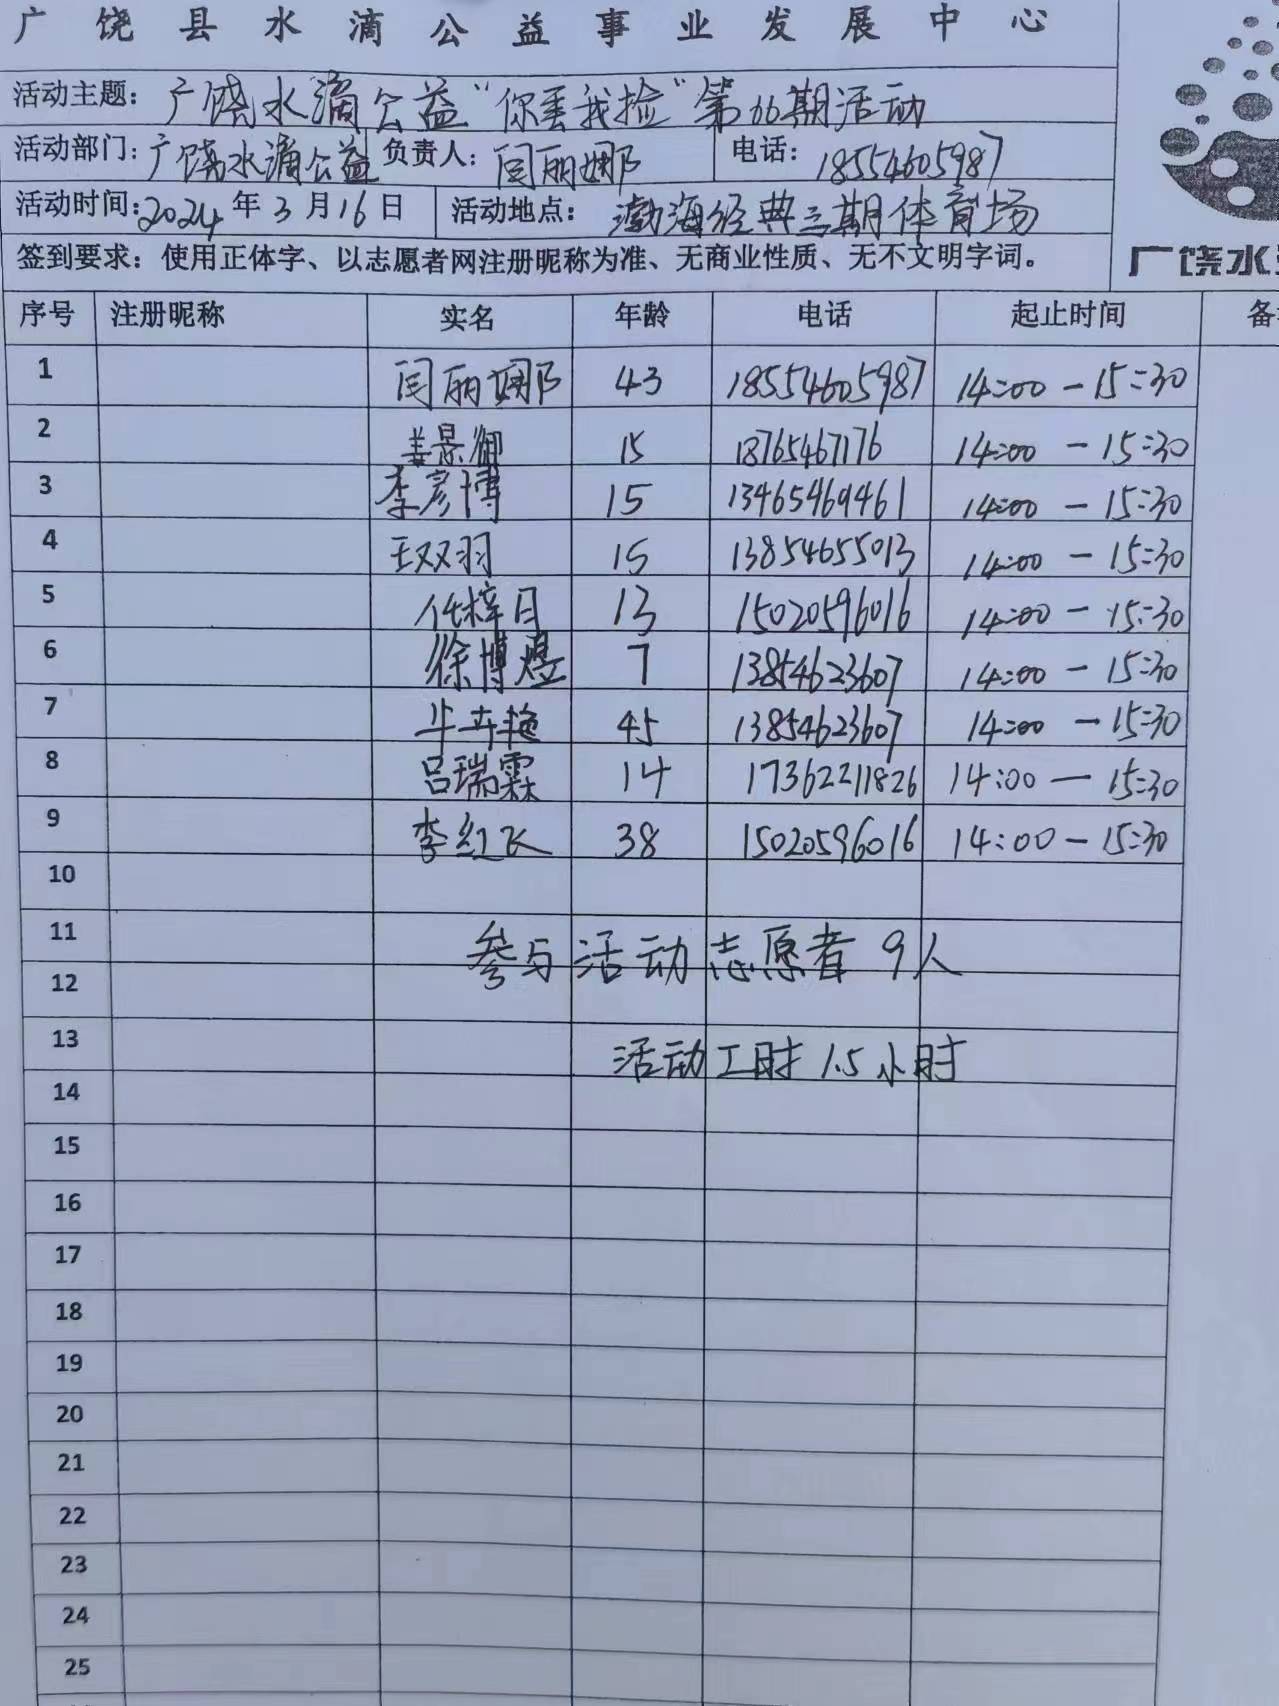 广饶县水滴公益事业发展中心
活动主题: 广饶水滴公益“你丢我捡”第66期活动
活动部门: 广饶水滴公益 负责人: 闫丽娜 电话: 18554605987
活动时间: 2024年3月16日 活动地点: 渤海经典三期体育场
签到要求: 使用正体字、以志愿者网注册昵称为准、无商业性质、无不文明字词。
广饶水
序号 注册昵称 实名 年龄 电话 起止时间 备
1 闫丽娜 43 18554605987 14:00 - 15:30
2 姜景御 15 18765467176 14:00 - 15:30
3 李彦博 15 13465469461 14:00 - 15:30
4 王双羽 15 13854655013 14:00 - 15:30
5 任梓日 13 15020596016 14:00 - 15:30
6 徐博煜 7 13854623607 14:00 - 15:30
7 45 13854623607 14:00 - 15:30
8 吕瑞霖 14 17362211826 14:00 - 15:30
9 李红飞 38 15020596016 14:00 - 15:30
10
11 参与活动志愿者9人
12
13 活动工时1.5小时
14
15
16
17
18
19
20
21
22
23
24
25